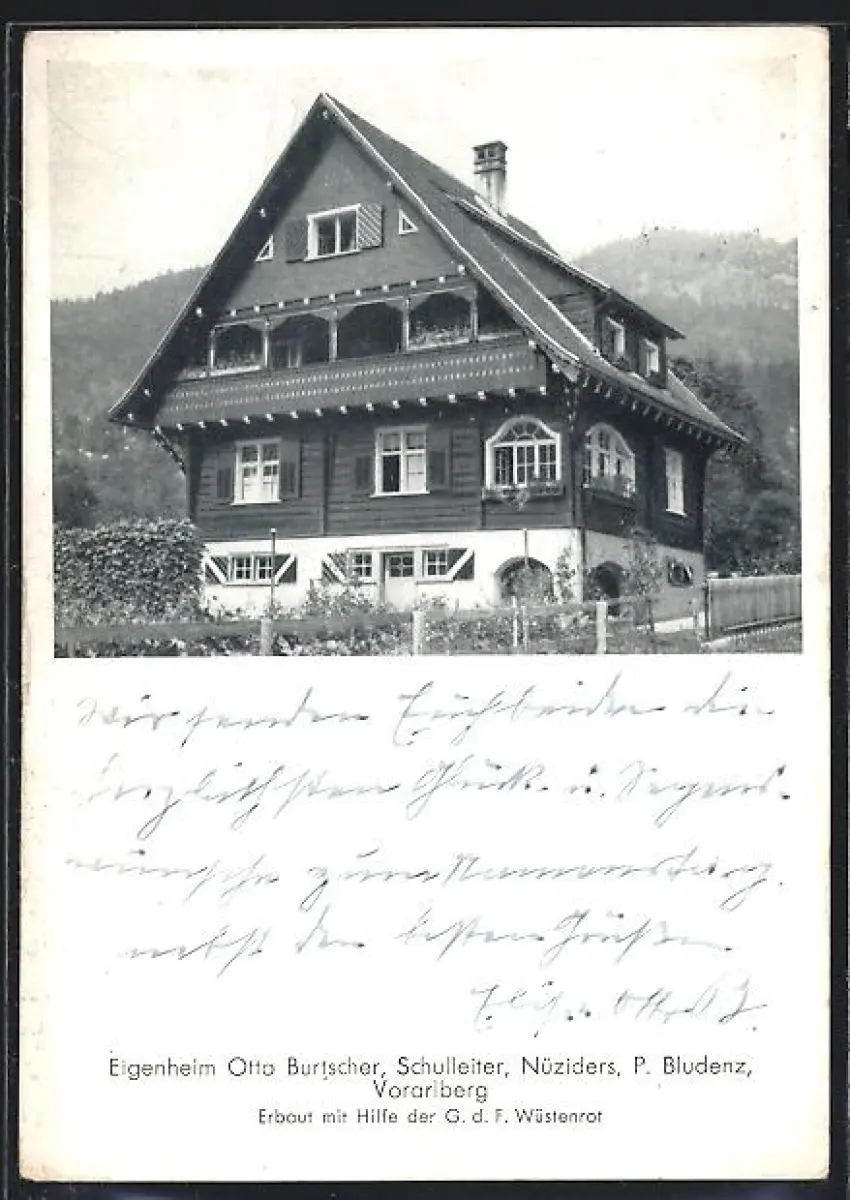 Wir senden Euch beiden die
herzlichsten Glück- u. Segens-
wünsche zum Namenstag.
nebst den besten Grüßen
Otto
Eigenheim Otto Burtscher, Schulleiter, Nüziders, P. Bludenz,
Vorarlberg
Erbaut mit Hilfe der G. d. F. Wüstenrot